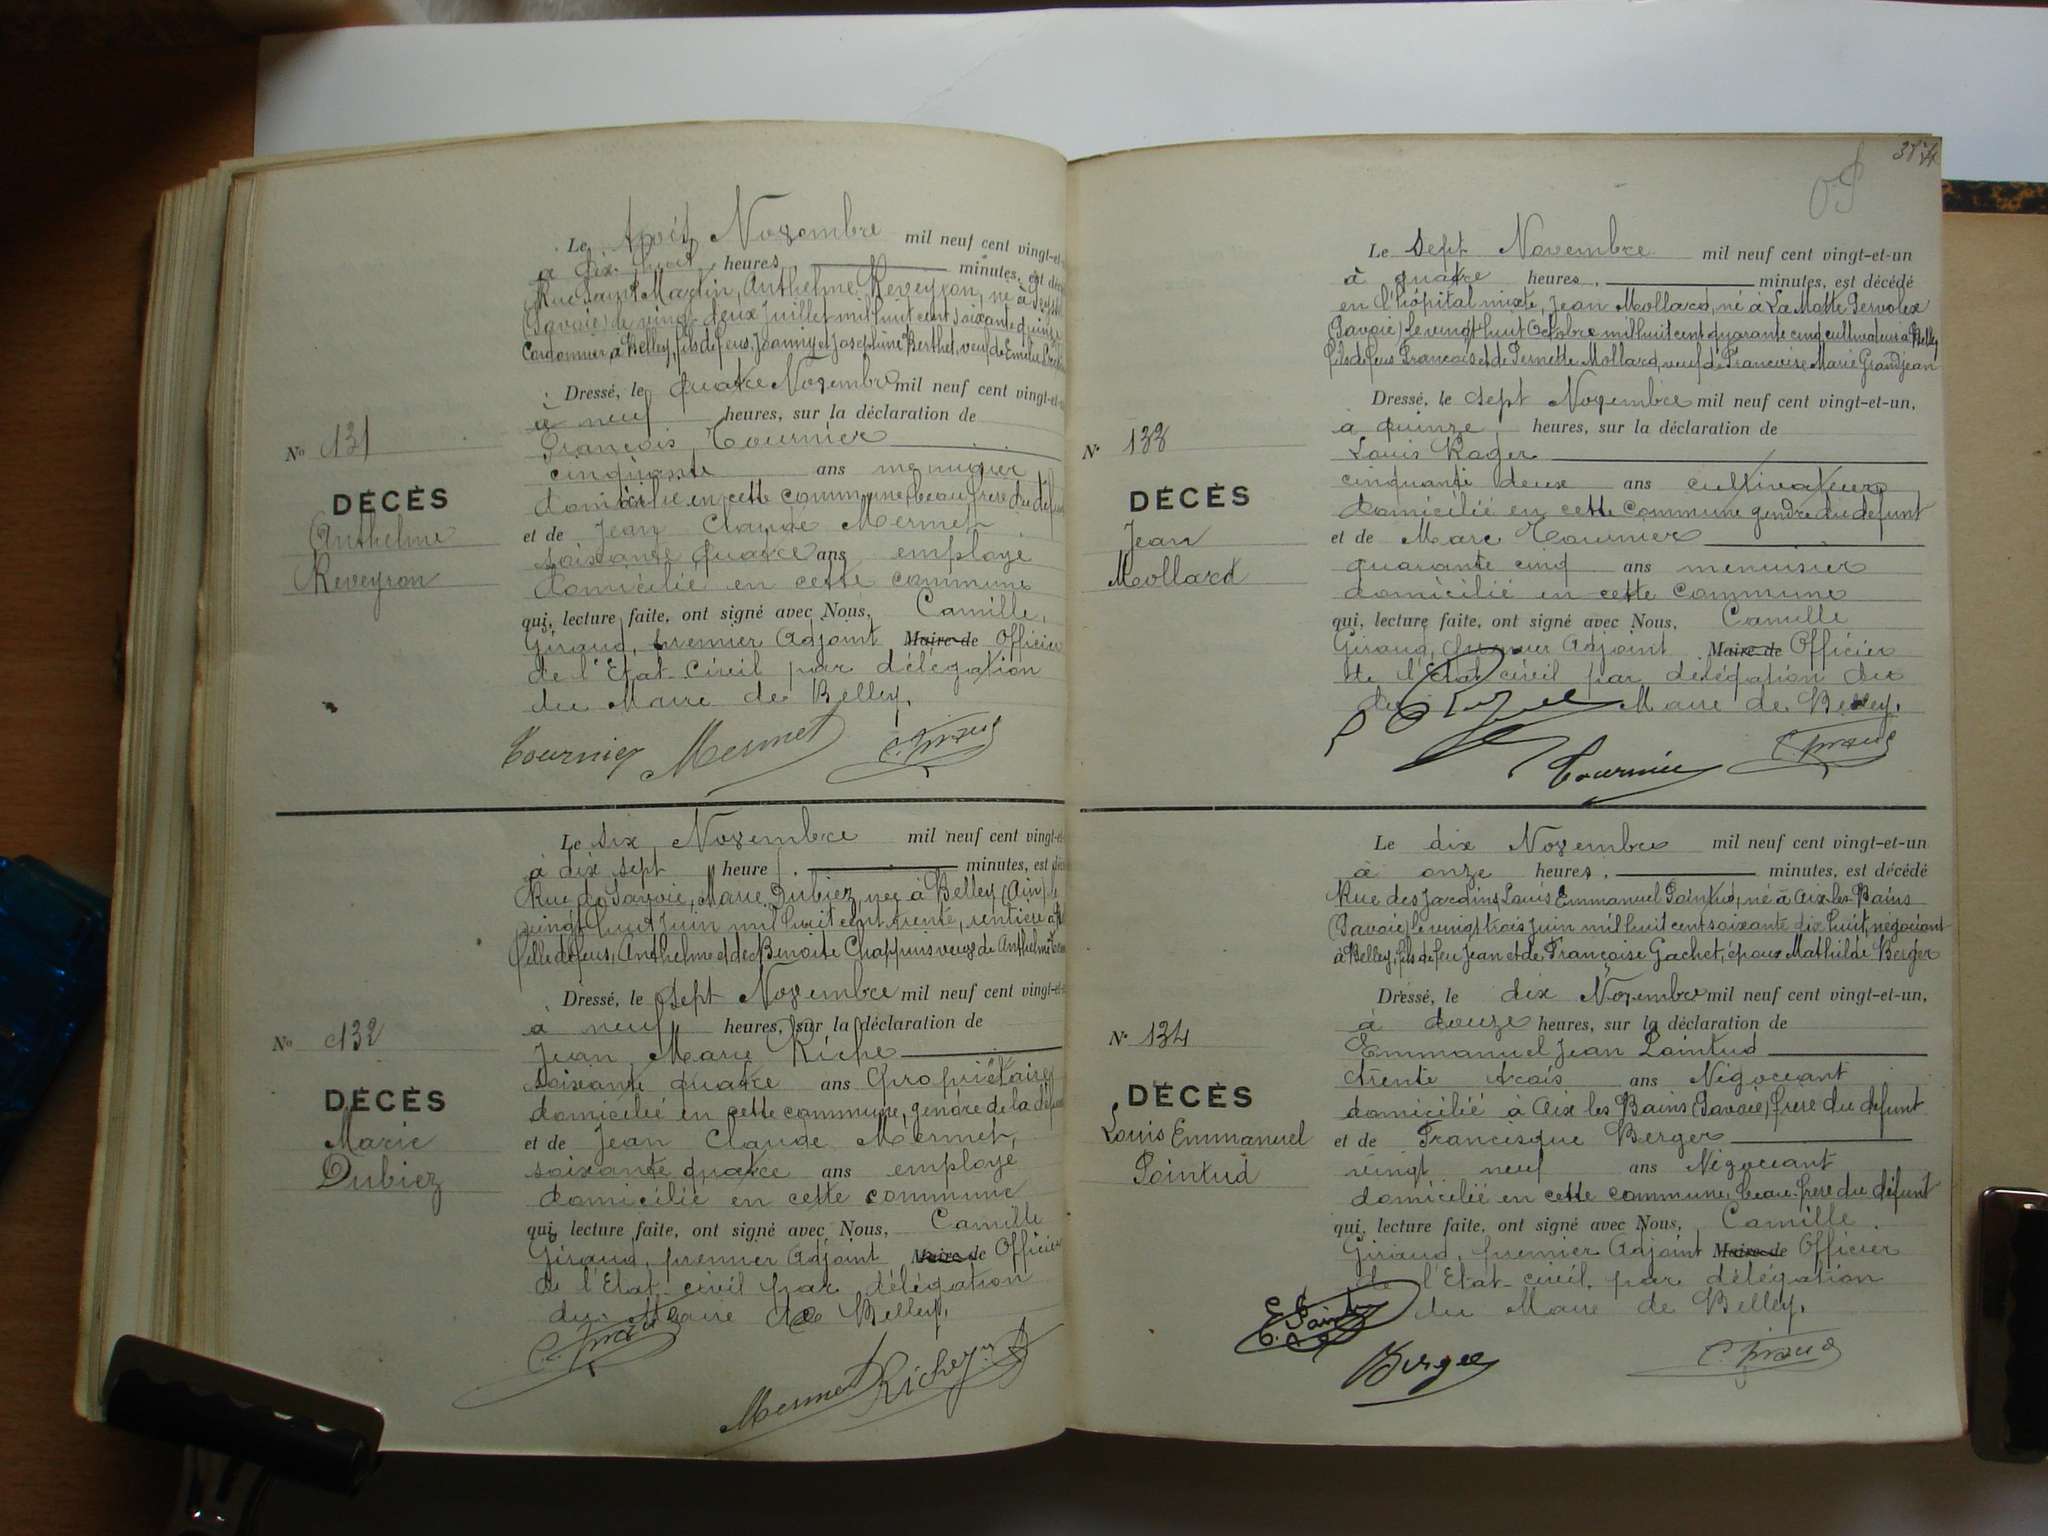 Le trois Novembre mil neuf cent vingt-et-
à dix huit heures minutes, est décé
Rue Saint Martin, Anthelme Reveyron, né à
(Savoie) le vingt deux Juillet mil huit cent soixante quinze
Cordonnier à Belley, fils de feus, Joanny et Joséphine Berthet, veuf de Emilie
Dressé, le quatre Novembre mil neuf cent vingt-et-
à neuf heures, sur la déclaration de
François Tournier
cinquante ans menuisier
domicilié en cette commune, beau frère du défunt
et de Jean Claude Mermet
soixante quatre ans employé
domicilié en cette commune
qui, lecture faite, ont signé avec Nous, Camille
Giraud, premier Adjoint Maire de Officier
de l'Etat-Civil par délégation
du Maire de Belley.
Tournier Mermet C. Giraud
No 131
DÉCÈS
Anthelme
Reveyron
Le six Novembre mil neuf cent vingt-et-
à dix sept heure minutes, est déc
Rue de Savoie, Marie Dubiez, née à Belley (Ain) le
vingt huit Juin mil huit cent trente, rentière à
fille de feus, Anthelme et de Benoite Chappuis veuve de Anthelme
Dressé, le sept Novembre mil neuf cent vingt-et-
à neuf heures, sur la déclaration de
Jean Marie Riche
soixante quatre ans Propriétaire
domicilié en cette commune, gendre de la défunte
et de Jean Claude Mermet,
soixante quatre ans employé
domicilié en cette commune
qui, lecture faite, ont signé avec Nous, Camille
Giraud, premier Adjoint Maire de Officier
de l'Etat-civil par délégation
du Maire de Belley.
C. Giraud
Mermet Riche
No 132
DÉCÈS
Marie
Dubiez
Le sept Novembre mil neuf cent vingt-et-un
à quatre heures, minutes, est décédé
en l'hôpital mixte, Jean Mollard, né à La Motte Servolex
(Savoie) le vingt huit Octobre mil huit cent quarante cinq cultivateur à Belley
fils de feus François et de Pernette Mollard, veuf de Françoise Marie Grandjean
Dressé, le sept Novembre mil neuf cent vingt-et-un,
à quinze heures, sur la déclaration de
Louis Roger
cinquante deux ans cultivateur
domicilié en cette commune gendre du défunt
et de Marc Tournier
quarante cinq ans menuisier
domicilié en cette commune
qui, lecture faite, ont signé avec Nous, Camille
Giraud, premier Adjoint Maire de Officier
de l'Etat civil par délégation du
Maire de Belley.
Tournier C. Giraud
No 133
DÉCÈS
Jean
Mollard
Le dix Novembre mil neuf cent vingt-et-un
à onze heures, minutes, est décédé
Rue des Jardins, Louis Emmanuel Pointud, né à Aix-les-Bains
(Savoie) le vingt trois Juin mil huit cent soixante dix huit, négociant
à Belley, fils de feu Jean et de Françoise Gachet, époux Mathilde Berger
Dressé, le dix Novembre mil neuf cent vingt-et-un,
à douze heures, sur la déclaration de
Emmanuel Jean Pointud
trente trois ans Négociant
domicilié à Aix les Bains (Savoie) frère du défunt
et de Francisque Berger
vingt neuf ans Négociant
domicilié en cette commune, beau-frère du défunt
qui, lecture faite, ont signé avec Nous, Camille
Giraud, premier Adjoint Maire de Officier
de l'Etat-civil par délégation
du Maire de Belley.
Berger C. Giraud
No 134
DÉCÈS
Louis Emmanuel
Pointud